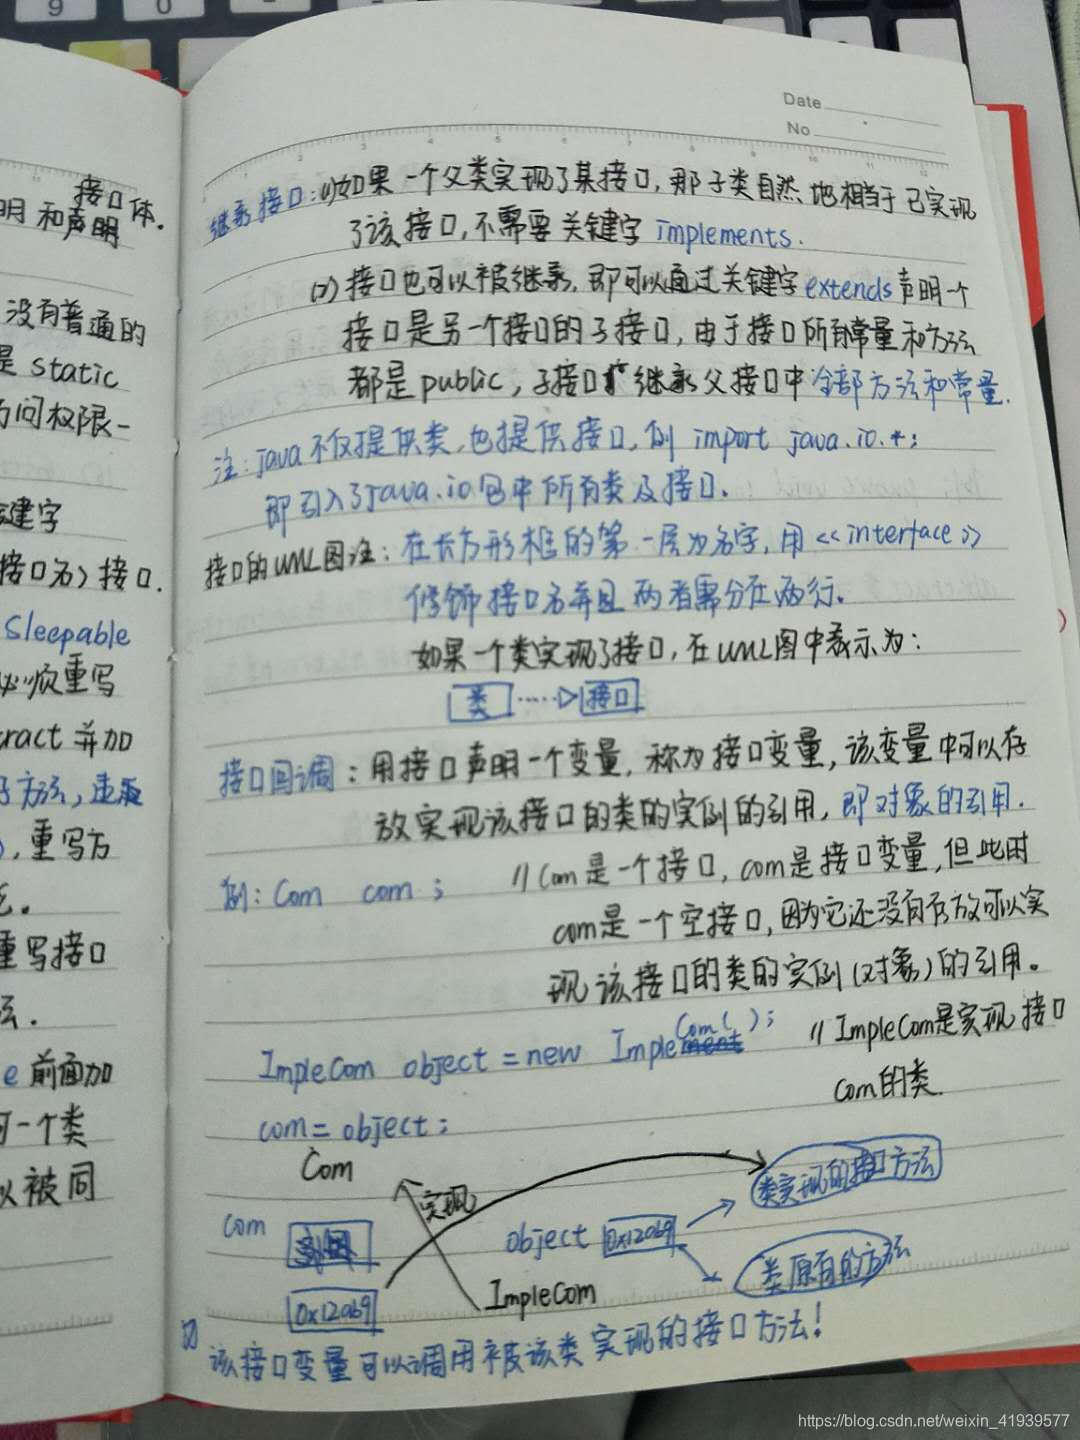 9
0
接口体.
明和声明
没有普通的
是 static
访问权限一
关键字
接口名> 接口.
Sleepable
必须重写
tract 并加
方法, 连
), 重写方
重写接口
法.
e 前面加
可一个类
以被同
Date
No
继承接口: (1)如果一个父类实现了某接口, 那子类自然地相当于已实现
了该接口, 不需要关键字 implements.
(2) 接口也可以被继承, 即可以通过关键字 extends 声明一个
接口是另一个接口的子接口, 由于接口所有常量和方法
都是 public, 子接口 继承父接口中全部方法和常量.
注: java 不仅提供类, 也提供接口, 例 import java.io.*;
即引入了java.io 包中所有类及接口.
接口的UML图注: 在长方形框的第一层为名字, 用 <<interface>>
修饰接口名并且两者需分在两行.
如果一个类实现了接口, 在UML图中表示为:
类 接口
接口回调: 用接口声明一个变量, 称为接口变量, 该变量中可以存
放实现该接口的类的实例的引用, 即对象的引用.
例: Com com; //Com是一个接口, com是接口变量, 但此时
com是一个空接口, 因为它还没有存放可以实
现该接口的类的实例(对象)的引用。
ImpleCom object = new ImpleCom( ); // ImpleCom是实现接口
Com的类
com = object;
Com
实现
类实现的接口方法
com
object 0x12ab9
类原有的方法
0x12ab9
ImpleCom
该接口变量可以调用被该类实现的接口方法!
https://blog.csdn.net/weixin_41939577